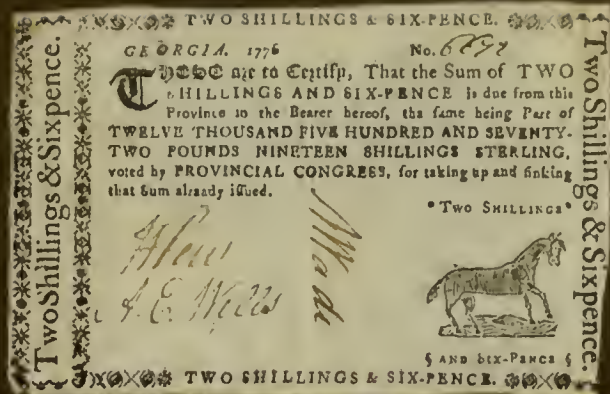 TWO SHILLINGS & SIX-PENCE.
TwoShillings&Sixpence.
GEORGIA. 1776
No.
THESE are to Certify, That the Sum of TWO
SHILLINGS AND SIX-PENCE is due from this
Province to the Bearer hereof, the same being Part of
TWELVE THOUSAND FIVE HUNDRED AND SEVENTY-
TWO POUNDS NINETEEN SHILLINGS STERLING,
voted by PROVINCIAL CONGRESS, for taking up and sinking
that Sum already issued.
Two Shillings
A. E. Wells
Wade
AND SIX-PENCE
TwoShillings & Sixpence.
TWO SHILLINGS & SIX-PENCE.